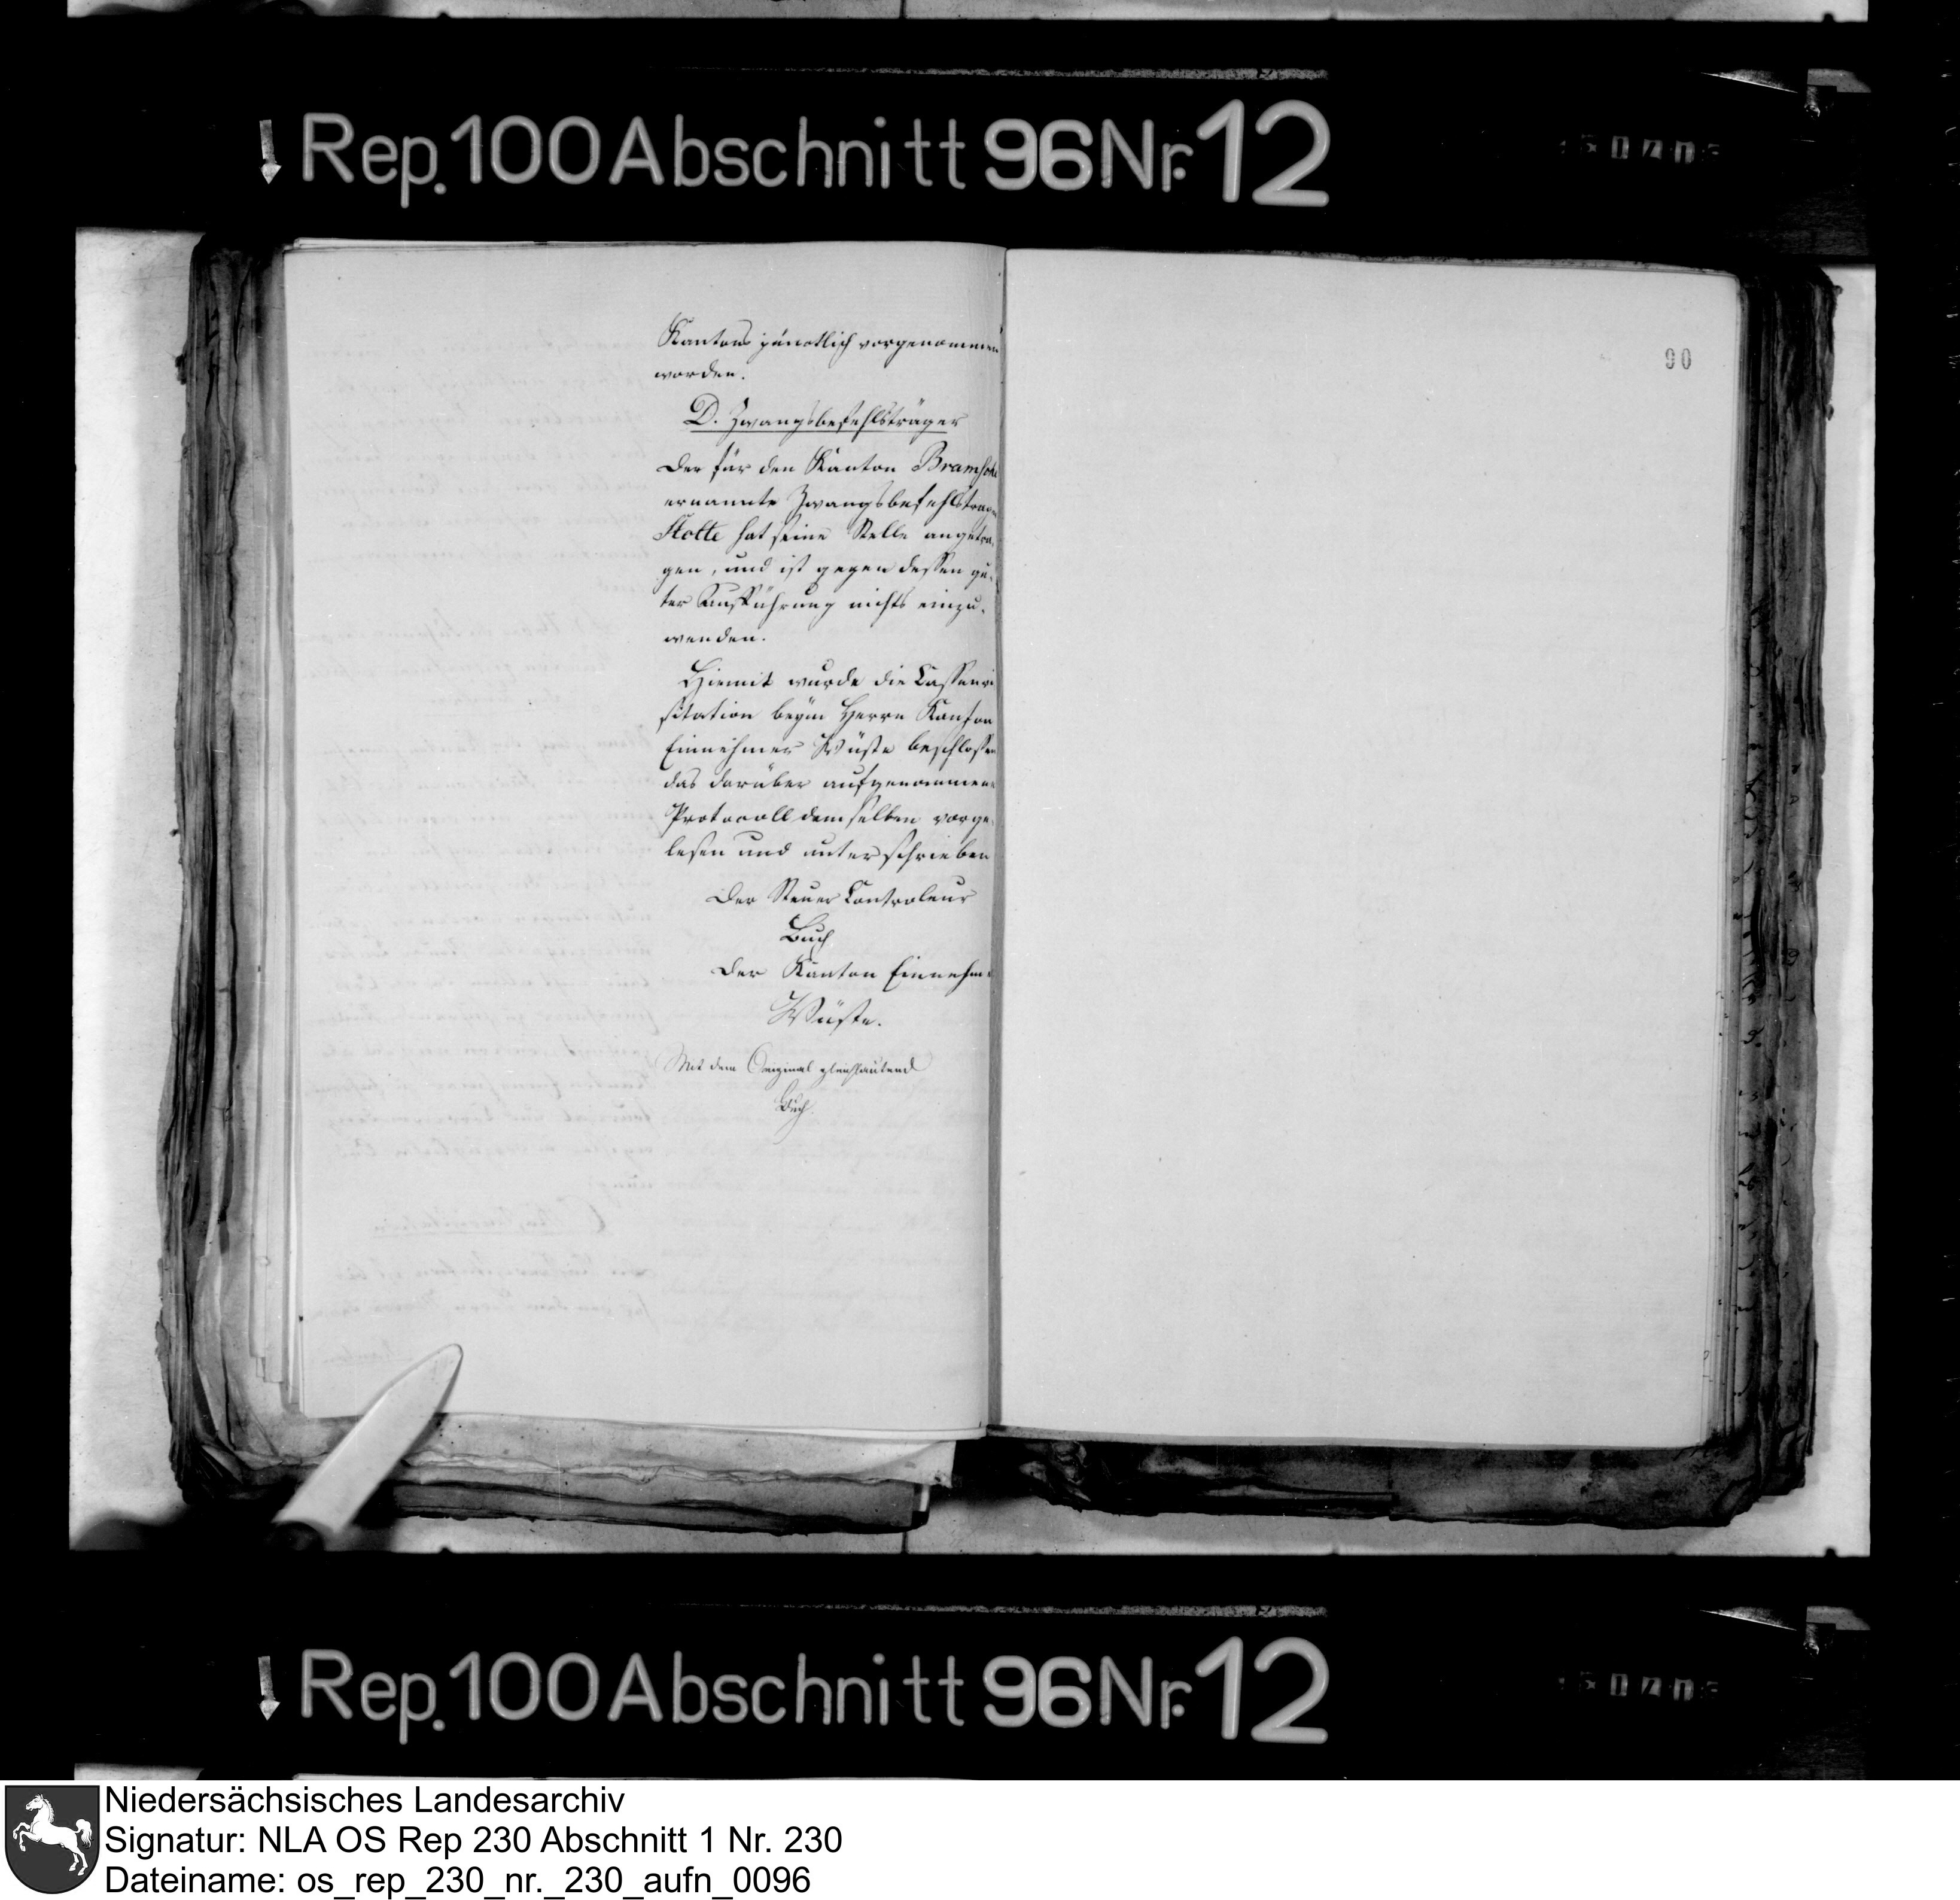 Rep. 100 Abschnitt 96 Nr. 12
90
Kantons pünctlich vorgenommen
worden.
D. Zwangsbefehlsträger
Der für den Kanton Bramsche
ernannte Zwangsbefehlsträger
Stolte hat seine Stelle angetra-
gen, und ist gegen dessen gu-
ter Ausführung nichts einzu-
wenden.
Hiemit wurde die Cassenvi
sitation beym Herrn Kanton
Einnehmer Wüste beschlossen
das darüber aufgenommene
Protocoll demselben vorge-
lesen und unterschrieben
Der Steuer Controleur
Buch
Der Kanton Einnehmer
Wüste.
Mit dem Original gleichlautend
Buch.
Rep. 100 Abschnitt 96 Nr. 12
Niedersächsisches Landesarchiv
Signatur: NLA OS Rep 230 Abschnitt 1 Nr. 230
Dateiname: os_rep_230_nr._230_aufn_0096